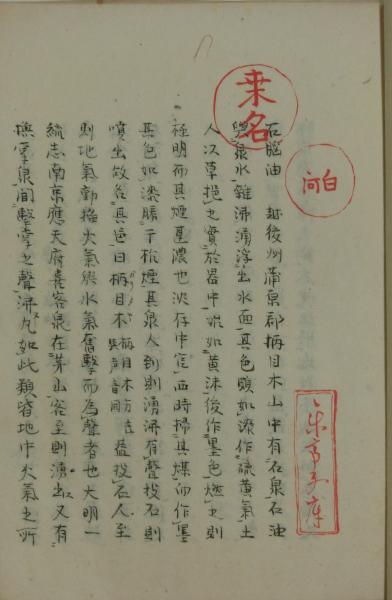 桒名
白河
楽亭文庫
石脳油　越後州蒲原郡柄目木山中有石泉石油
與泉水雜沸湧浮出水面其色頗如漆作硫黄氣土
人以草挹之實於器中詑如黄沫後作墨色燃之則
極明而其煙甚濃也以存中宦西時掃其煤而作墨
其色如漆勝于松煙其泉人到則湧沸有聲投石則
噴出故名其邑曰柄目木柄目木防言與聲音盖投石人至
則地氣動搖火氣與水氣奮擊而為聲者也大明一
統志南京應天府喜客泉在茅山客至則湧出又有
撫掌泉聞擊掌之聲沸凡如此類皆地中火氣之所